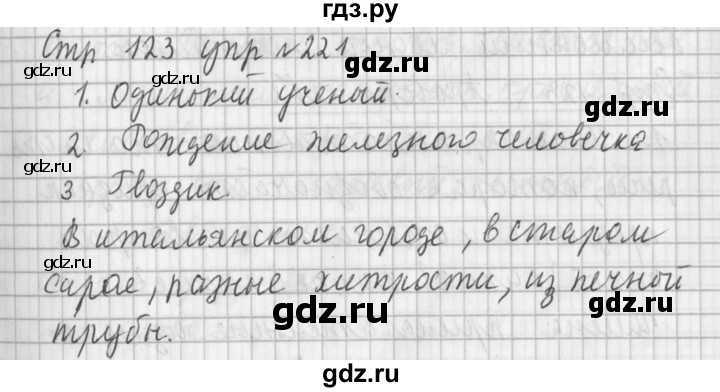 гдз.ру
Стр 123 упр №221
1. Одинокий ученый.
2. Рождение железного человечка
3 Гвоздик.
В итальянском городе, в старом
сарае, разные хитрости, из печной
трубы.
gdz.ru
gdz.ru
gdz.ru
gdz.ru
gdz.ru
gdz.ru
gdz.ru
gdz.ru
gdz.ru
gdz.ru
gdz.ru
gdz.ru